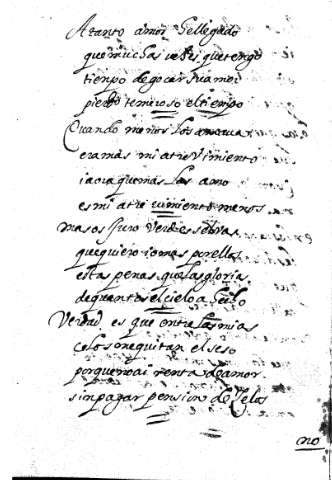 A tanto amor he llegado
que muchas veçes que tengo
tienpo de goçar su amor
pierdo temeroso el tienpo
Quando menos los amaua
era mas mi atrevimiento
i aora que mas los amo
es mi atrevimiento menos
mas os juro verdes
que quiero mas por ellos
estas penas que las glorias
de quantos el cielo a hecho
Verdad es que entre las mias
celos me quitan el seso
porque no ai renta de amor
sin pagar pension de Celos
no